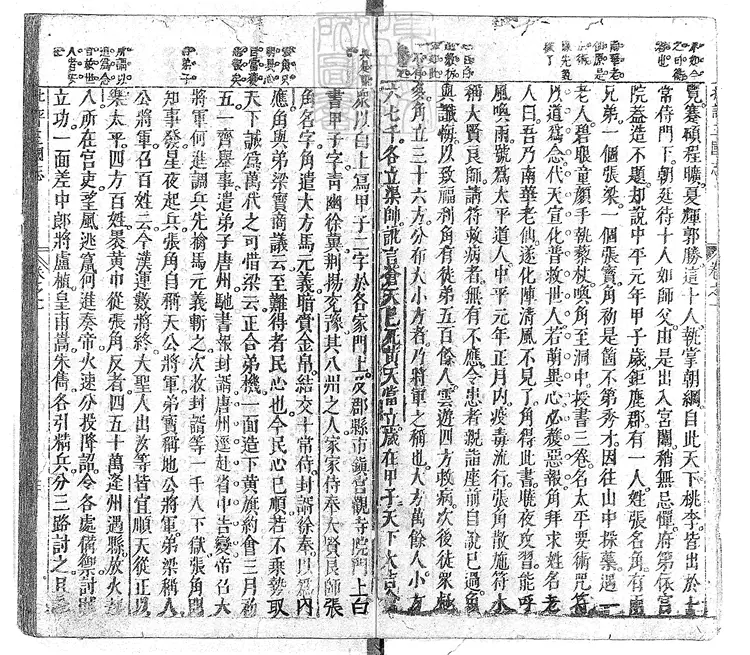 覽蹇碩程曠夏輝郭勝這十人執掌朝綱自此天下桃李皆出於十
常侍門下朝廷待十人如師父由是出入宮闈稍無忌憚府第依宮
院蓋造不題却說中平元年甲子歲鉅鹿郡有一人姓張名角有兩
兄弟一個張梁一個張寶角初是箇不第秀才因往山中採藥遇一
老人碧眼童顏手執藜杖喚角至洞中授書三卷名太平要術咒符
以道為念代天宣化普救世人若萌異心必獲惡報角拜求姓名老
人曰吾乃南華老仙遂化陣清風不見了角得此書曉夜攻習能呼
風喚雨號為太平道人中平元年正月內疫毒流行張角散施符水
稱大賢良師請符救病者無有不應令患者親詣座前自說已過角
與懺悔以致福利角有徒弟五百餘人雲遊四方救病次後徒眾極
多角立三十六方分布大小方者乃將軍之稱也大方萬餘人小方
六七千各立渠帥訛言蒼天已死黃天當立歲在甲子天下大吉
眾以白土寫甲子二字於各家門上及郡縣市鎮宮觀寺院門上白
書甲子字青幽徐冀荊揚兗豫其八州之人家家侍奉大賢良師張
角名字角遣大方馬元義暗賞金帛結交十常侍封諝徐奉以為內
應角與弟梁寶商議云至難得者民心也今民心已順若不乘勢取
天下誠為萬代之可惜梁云正合弟機一面造下黃旗約會三月初
五一齊舉事遣弟子唐州馳書報封諝唐州逕赴省中告變帝召大
將軍何進調兵先擒馬元義斬之次收封諝等一千人下獄張角聞
知事發星夜起兵張角自稱天公將軍弟寶稱地公將軍弟梁稱人
公將軍召百姓云今漢運數將終大聖人出汝等皆宜順天從正以
樂太平四方百姓裹黃巾從張角反者四五十萬逢州遇縣放火劫
人所在官吏望風逃竄何進奏帝火速分投降詔令各處備禦討賊
立功一面差中郎將盧植皇甫嵩朱雋各引精兵分三路討之且